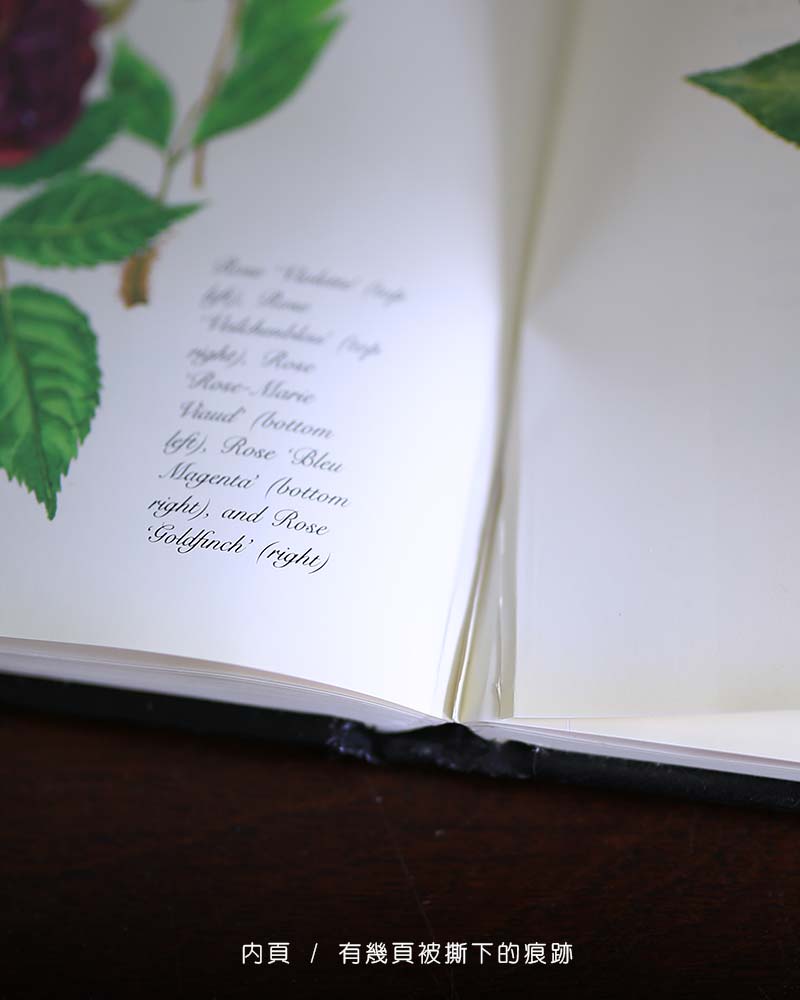 Rose 'Violette' (top
left), Rose
'Veilchenblau' (top
right), Rose
'Rose-Marie
Viaud' (bottom
left), Rose 'Bleu
Magenta' (bottom
right), and Rose
'Goldfinch' (right)
内頁 / 有幾頁被撕下的痕跡